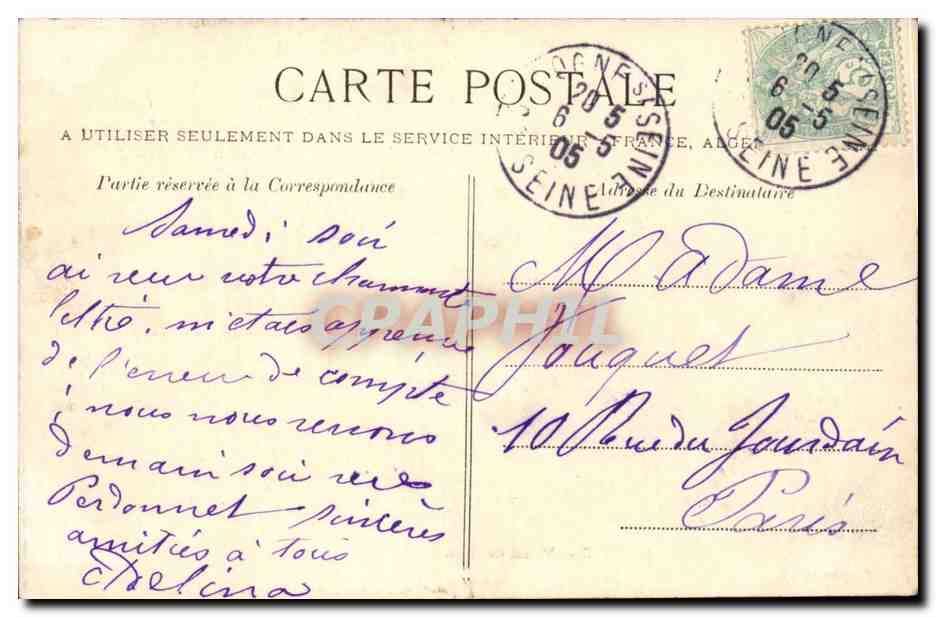 CARTE POSTALE
A UTILISER SEULEMENT DANS LE SERVICE INTÉRIEUR FRANCE, ALGÉ
Partie réservée à la Correspondance
Adresse du Destinataire
OGNE S SEINE
20 5
6 5
05
SEINE
OGNE S SEINE
20 5
6 5
05
SEINE
Samedi soir
ai reçu votre charmante
lettre. m'etais
de l'erreur de compte
nous nous verrons
demain soir rue
Perdonnet sincères
amitiés à tous
Adelina
Madame
Fouquet
10 Rue du Jourdain
Paris
CRAPHIL